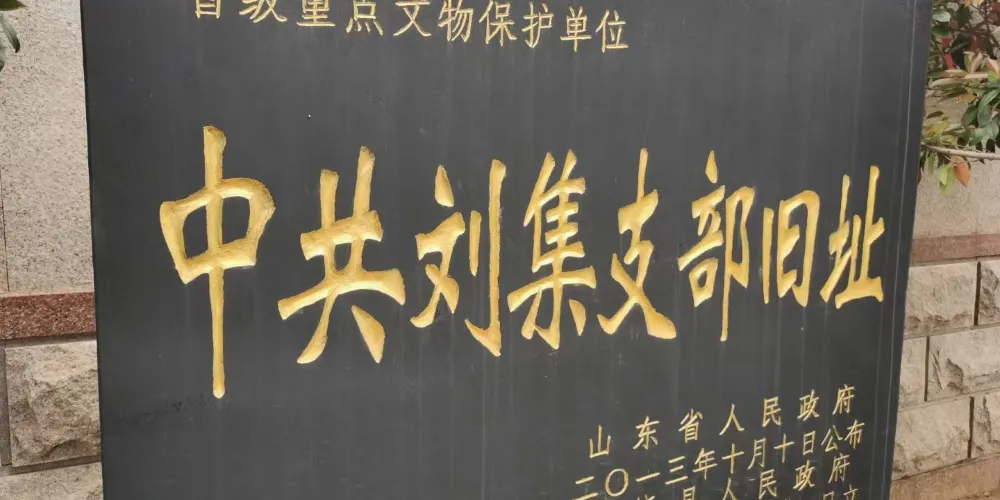 省级重点文物保护单位
中共刘集支部旧址
山东省人民政府
二〇一三年十月十日公布
县人民政府